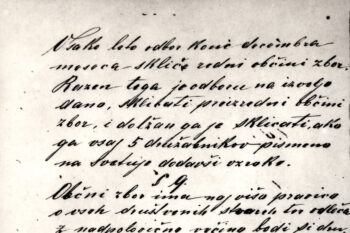 Vsako leto odbor konič decembra
meseca skliče redni občini zbor.
Razen tega je odboru na izvoljo
dano, sklicati proizredni občini
zbor, i dolžan ga je sklicati, ako
ga vsaj 5 družabnikov pismeno
na svetuje dodavši vzroke.
§ 9.
Občni zbor ima naj višo pravico
o vseh društvenih stvareh ter odloča
z nadpolovično večino bodi si dru